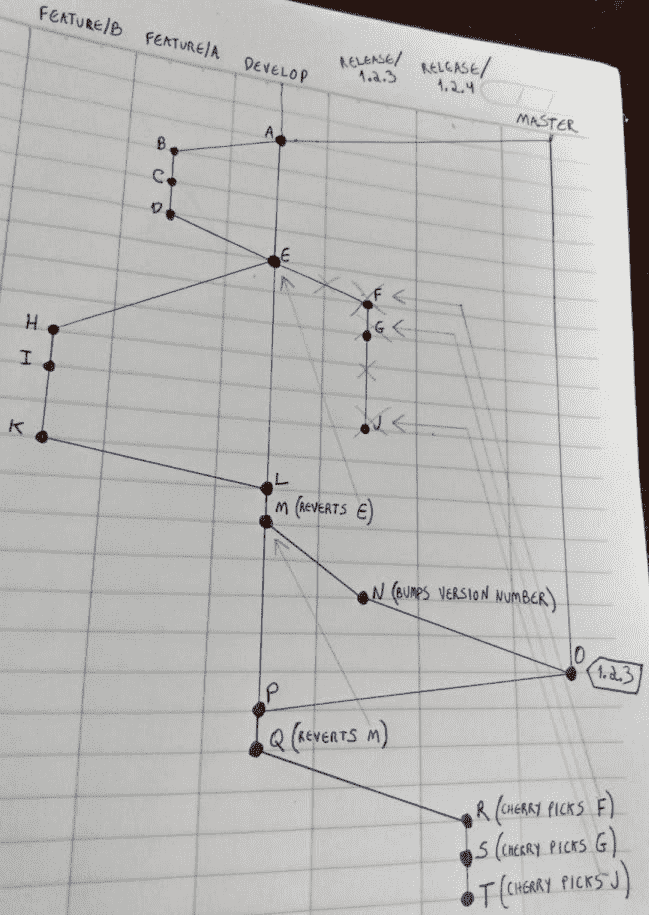 FEATURE/B
FEATURE/A
DEVELOP
RELEASE/
1.2.3
RELEASE/
1.2.4
MASTER
A
B
C
D
E
F
G
H
I
J
K
L
M (REVERTS E)
N (BUMPS VERSION NUMBER)
O
1.2.3
P
Q (REVERTS M)
R (CHERRY PICKS F)
S (CHERRY PICKS G)
T (CHERRY PICKS J)